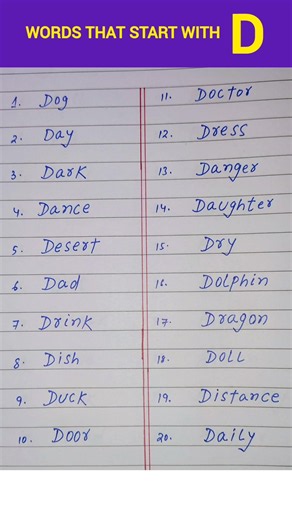 WORDS THAT START WITH D
1. Dog
2. Day
3. Dark
4. Dance
5. Desert
6. Dad
7. Drink
8. Dish
9. Duck
10. Door
11. Doctor
12. Dress
13. Danger
14. Daughter
15. Dry
16. Dolphin
17. Dragon
18. Doll
19. Distance
20. Daily